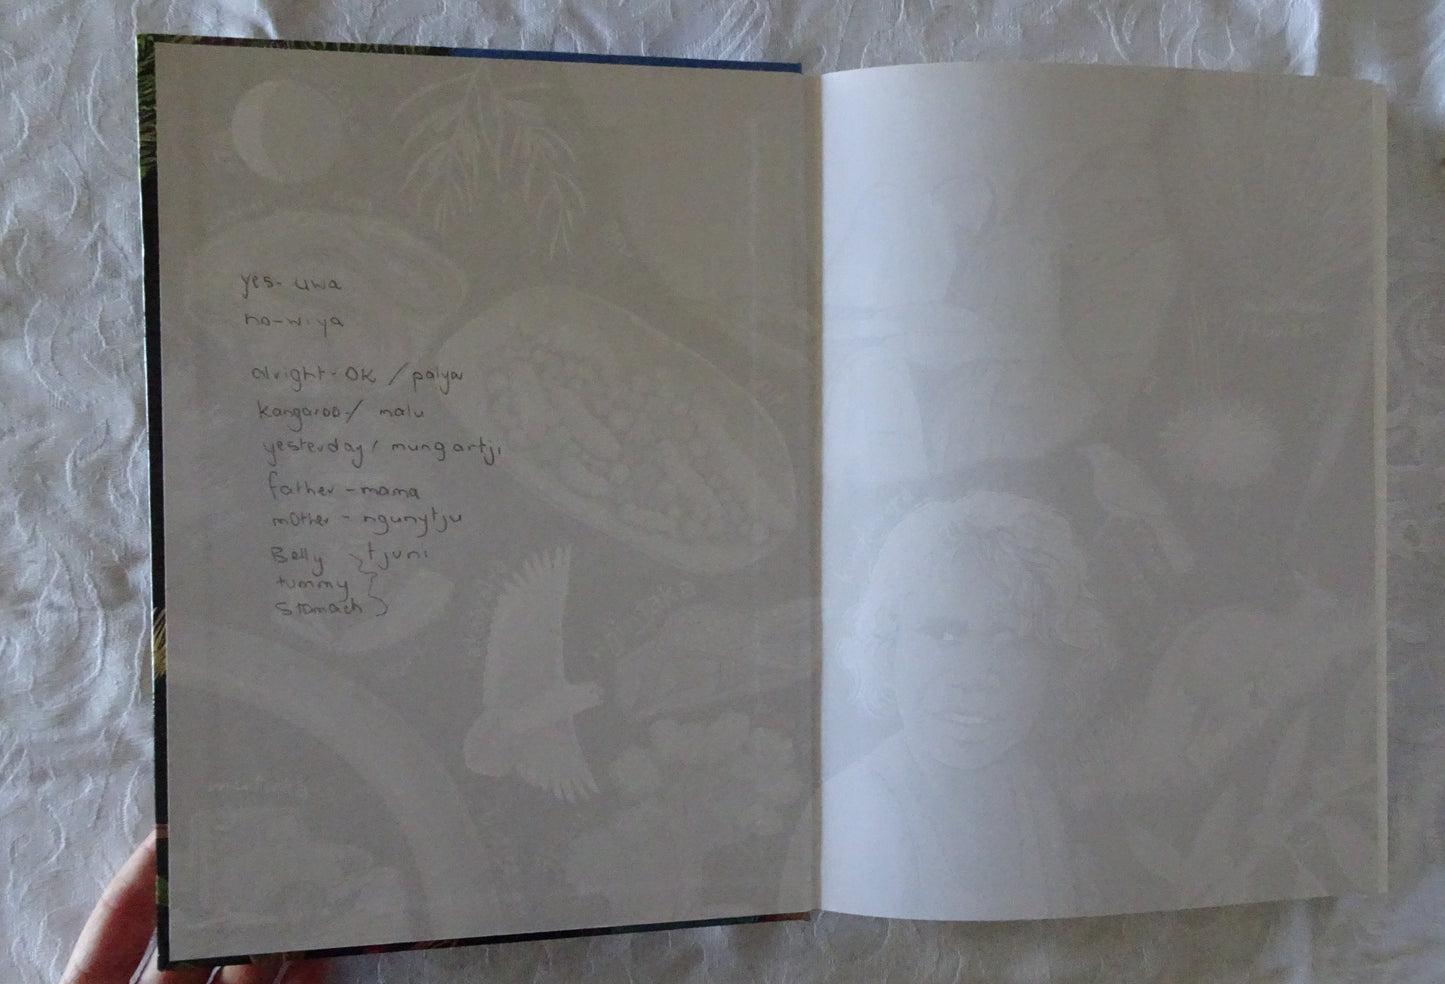 yes- uwa
no-wiya
alright-OK / palya
kangaroo-/ malu
yesterday/ mungartji
father - mama
mother - ngunytju
Belly } tjuni
tummy }
Stomach }